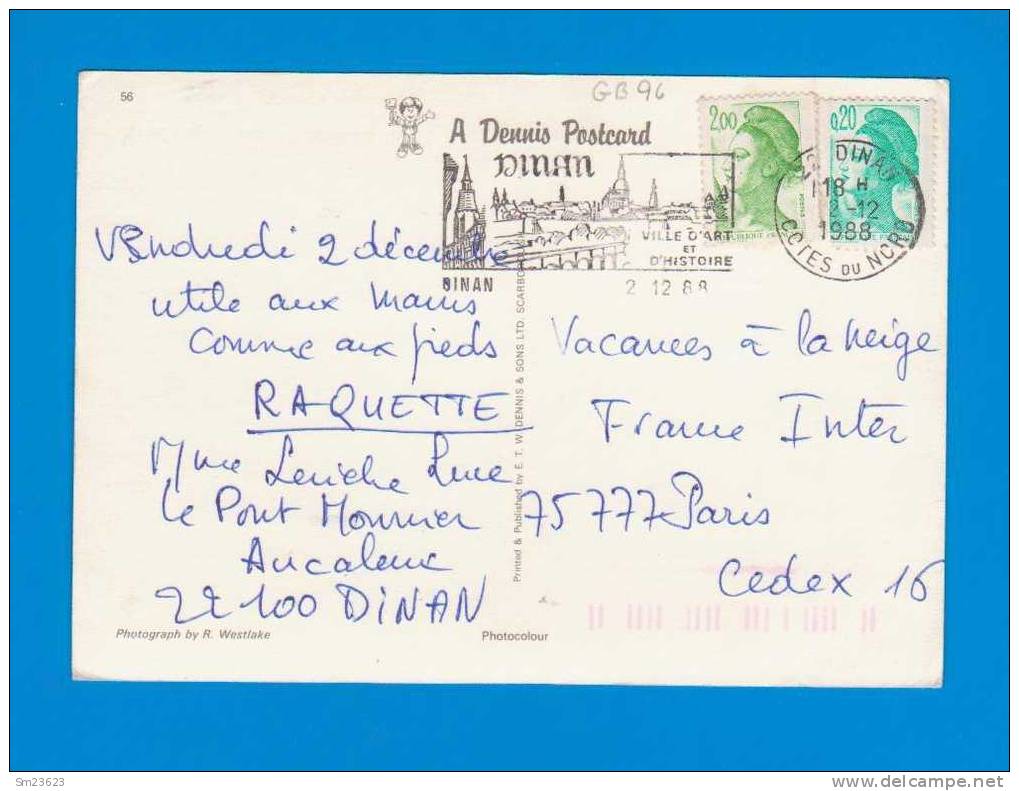 56
GB 96
A Dennis Postcard
DINAN
VILLE D'ART
ET
D'HISTOIRE
DINAN
2 12 88
2,00
0,20
DINAN
18 H
2-12
1988
COTES DU NORD
Vendredi 2 décembre
utile aux mains
comme aux pieds
RAQUETTE
Mme Leriche Luce
Le Pont Monnier
Aucaleuc
22100 DINAN
Printed & Published by E. T. W. DENNIS & SONS LTD. SCARBOR
Vacances à la neige
France Inter
75777 Paris
Cedex 16
Photograph by R. Westlake
Photocolour
Sm23623
www.delcampe.net